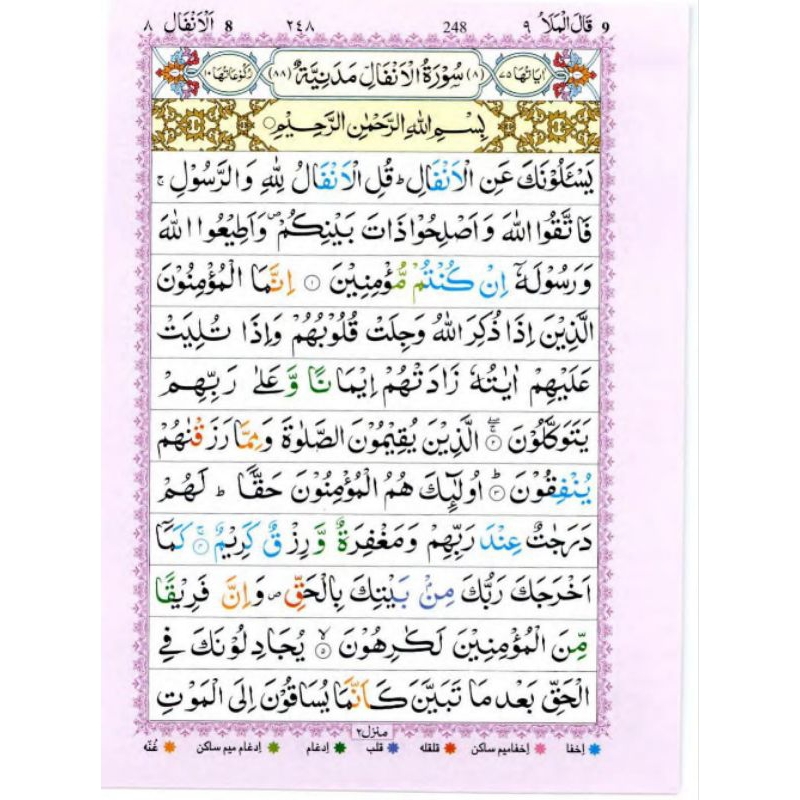 9 قَالَ الْمَلَأُ ٩ 248 ٢٤٨ 8 اَلْاَنْفَال ٨
اٰیَاتُهَا ٧٥ (٨) سُوْرَةُ الْاَنْفَالِ مَدَنِيَّةٌ (٨٨) رُكُوْعَاتُهَا ١٠
بِسْمِ اللهِ الرَّحْمٰنِ الرَّحِيْمِ
يَسْـَٔلُوْنَكَ عَنِ الْاَنْفَالِ ؕ قُلِ الْاَنْفَالُ لِلّٰهِ وَالرَّسُوْلِ ۚ
فَاتَّقُوا اللهَ وَاَصْلِحُوْا ذَاتَ بَيْنِكُمْ ۪ وَاَطِيْعُوا اللهَ
وَرَسُوْلَهٗۤ اِنْ كُنْتُمْ مُّؤْمِنِيْنَ ۝١ اِنَّمَا الْمُؤْمِنُوْنَ
الَّذِيْنَ اِذَا ذُكِرَ اللهُ وَجِلَتْ قُلُوْبُهُمْ وَاِذَا تُلِيَتْ
عَلَيْهِمْ اٰيٰتُهٗ زَادَتْهُمْ اِيْمَانًا وَّعَلٰى رَبِّهِمْ
يَتَوَكَّلُوْنَ ۝٢ۚۖ الَّذِيْنَ يُقِيْمُوْنَ الصَّلٰوةَ وَمِمَّا رَزَقْنٰهُمْ
يُنْفِقُوْنَ ۝٣ؕ اُولٰٓئِكَ هُمُ الْمُؤْمِنُوْنَ حَقًّا ؕ لَهُمْ
دَرَجٰتٌ عِنْدَ رَبِّهِمْ وَمَغْفِرَةٌ وَّرِزْقٌ كَرِيْمٌ ۝٤ۚ كَمَاۤ
اَخْرَجَكَ رَبُّكَ مِنْۢ بَيْتِكَ بِالْحَقِّ ۪ وَاِنَّ فَرِيْقًا
مِّنَ الْمُؤْمِنِيْنَ لَكٰرِهُوْنَ ۝٥ۙ يُجَادِلُوْنَكَ فِى
الْحَقِّ بَعْدَ مَا تَبَيَّنَ كَاَنَّمَا يُسَاقُوْنَ اِلَى الْمَوْتِ
منزل ٢
اِخفا اِخفامیم ساکن قلقله قلب اِدغام اِدغام میم ساکن غُنّه